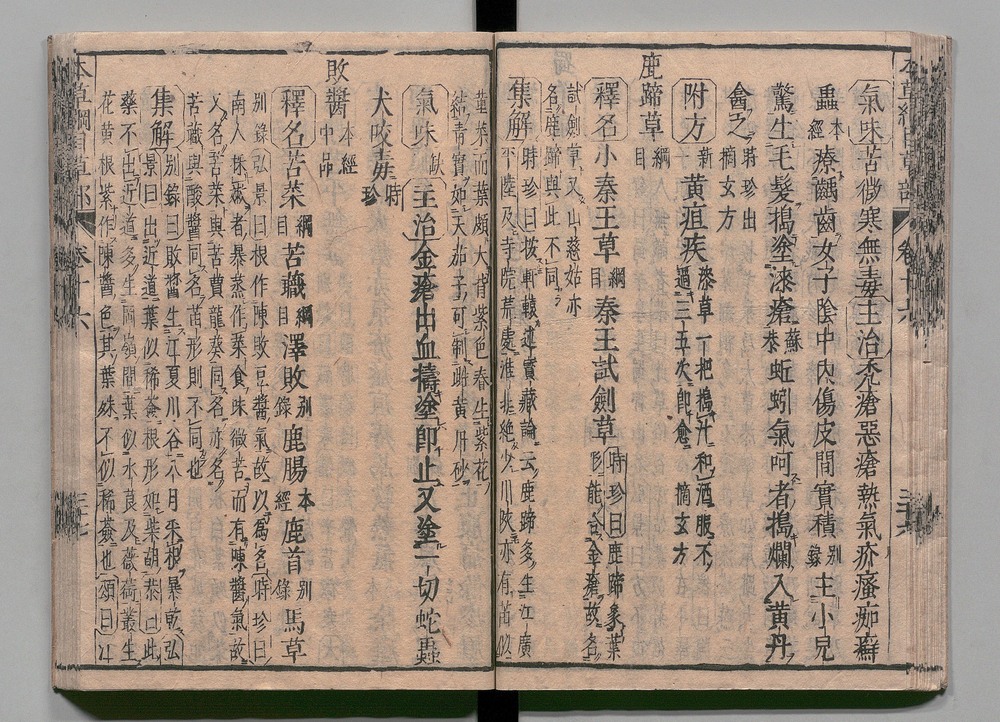 氣味苦微寒無毒主治禿瘡惡瘡熱氣疥瘙痂癬
蟲本經療齲齒女子陰中內傷皮間實積別錄主小兒
驚生毛髮搗塗漆瘡蘇恭蚯蚓氣呵者搗爛入黃丹
盦之時珍出摘玄方
附方新一黃疸疾漆草一把搗汁和酒服不過三五次即愈摘玄方
鹿蹄草綱目
釋名小秦王草綱目秦王試劍草時珍曰鹿蹄象葉形能合金瘡故名
試劍草又山慈姑亦名鹿蹄與此不同
集解時珍曰按軒轅述寶藏論云鹿蹄多生江廣平陸及寺院荒處淮北絕少川陝亦有苗似
菫菜而葉頗大背紫色春生紫花結青實如天茄子可制雌黃丹砂
氣味缺主治金瘡出血擣塗即止又塗一切蛇蟲
犬咬毒時珍
敗醬本經中品
釋名苦菜綱目苦蘵綱目澤敗別錄鹿腸本經鹿首別錄馬草
別錄弘景曰根作陳敗豆醬氣故以為名時珍曰
南人採嫩者暴蒸作菜食味微苦而有陳醬氣故
又名苦菜與苦蕒龍葵同名亦名
苦蘵與酸醬同名苗形則不同也
集解別錄曰敗醬生江夏川谷八月采根暴乾弘景曰出近道葉似豨薟根形如柴胡恭曰此
藥不出近道多生岡嶺間葉似水莨及薇蘅叢生
花黃根紫作陳醬色其葉殊不似豨薟也頌曰江
本草綱目草部 卷十六